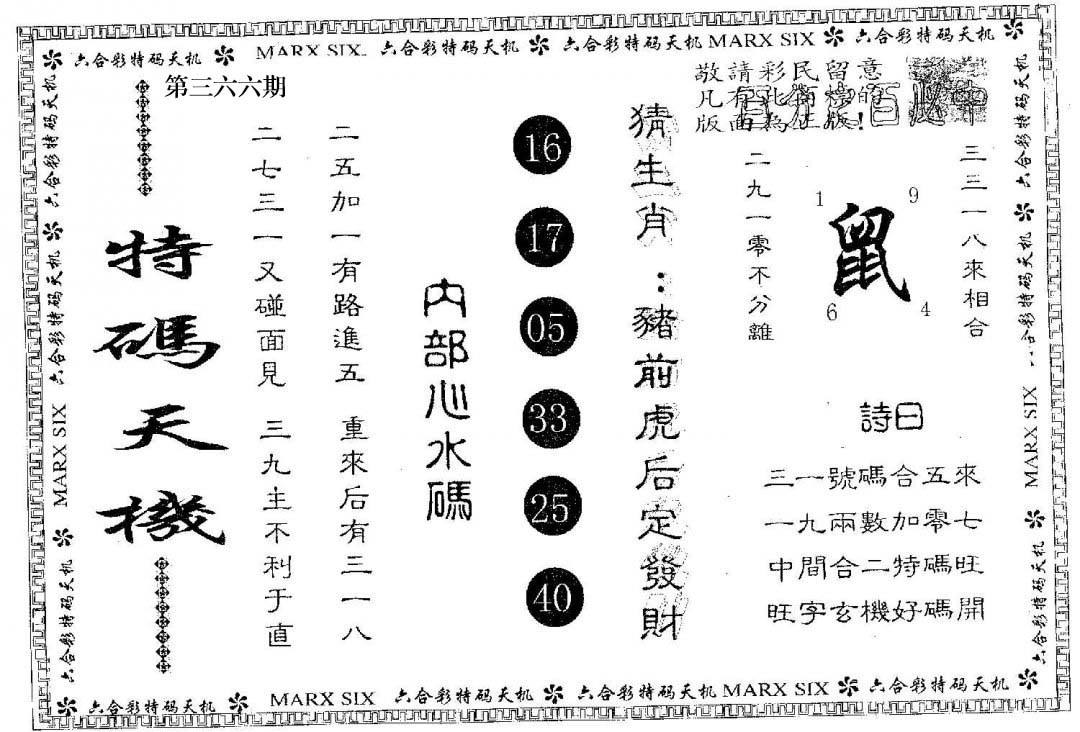 六合彩特码天机 MARX SIX 六合彩特码天机 六合彩特码天机 MARX SIX 六合彩特码天机
第三六六期
敬請彩民留意
凡有此
的
版面為正版!
百必中
三三一八來相合
二九一零不分離
1
9
鼠
6
4
詩曰
三一號碼合五來
一九兩數加零七
中間合二特碼旺
旺字玄機好碼開
猜生肖：豬前虎后定發財
16
17
05
33
25
40
內部心水碼
二五加一有路進五
重來后有三一八
二七三一又碰面見
三九主不利于直
特碼天機
六合彩特码天机
六合彩特码天机
MARX SIX
六合彩特码天机
六合彩特码天机
六合彩特码天机
MARX SIX
六合彩特码天机
六合彩特码天机 MARX SIX 六合彩特码天机 六合彩特码天机 MARX SIX 六合彩特码天机